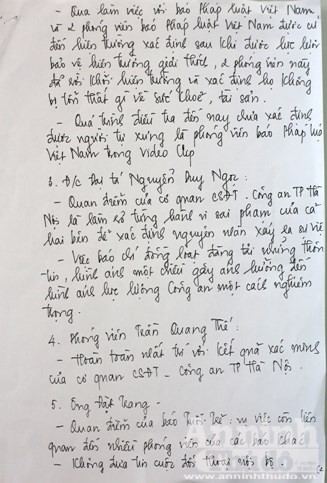 - Qua làm việc với báo Pháp luật Việt Nam
và 2 phóng viên báo Pháp luật Việt Nam được cử
đến hiện trường xác định sau khi được lực lượng
bảo vệ hiện trường giải thích, 2 phóng viên này
đã rời khỏi hiện trường và xác định họ không
bị tổn thất gì về sức khoẻ, tài sản.
- Quá trình điều tra đến nay chưa xác định
được người tự xưng là phóng viên báo Pháp luật
Việt Nam trong Video Clip
3. Đ/c Đại tá Nguyễn Duy Ngọc:
- Quan điểm của cơ quan CSĐT - Công an TP Hà
Nội là làm rõ từng hành vi sai phạm của cả
hai bên để xác định nguyên nhân xảy ra sự việc
- Việc báo chí đồng loạt đăng tải những thông
tin, hình ảnh một chiều gây ảnh hưởng đến
hình ảnh lực lượng Công an một cách nghiêm
trọng.
4. Phóng viên Trần Quang Thế:
- Hoàn toàn nhất trí với kết quả xác minh
của cơ quan CSĐT - Công an TP Hà Nội.
5. Ông Đạt
- Quan điểm của báo vụ việc còn liên
quan đến nhiều phóng viên của các báo khác
- Không đưa tin cuộc đối thoại nội bộ.
www.anninhthudo.vn